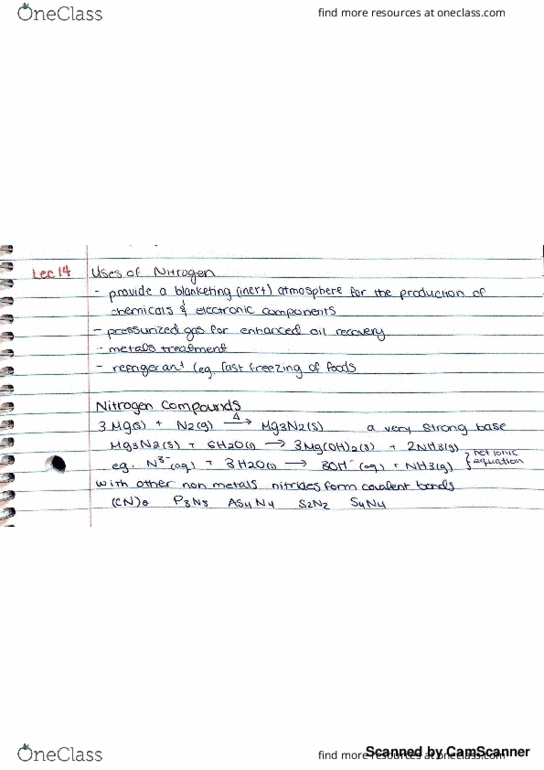 OneClass
find more resources at oneclass.com
Lec 14
Uses of Nitrogen
- provide a blanketing (inert) atmosphere for the production of
chemicals & electronic components
- pressurized gas for enhanced oil recovery
- metals treatment
- refrigerant (eg. fast freezing of foods
Nitrogen Compounds
3Mg(s) + N2(g) Δ→ Mg3N2(s) a very strong base
Mg3N2(s) + 6H2O(l) → 3Mg(OH)2(s) + 2NH3(g)
eg. N³⁻(aq) + 3H2O(l) → 3OH⁻(aq) + NH3(g) } net ionic equation
with other non metals nitrides form covalent bonds
(CN)8 P3N5 As4N4 S2N2 S4N4
OneClass
find more resources at oneclass.com
Scanned by CamScanner